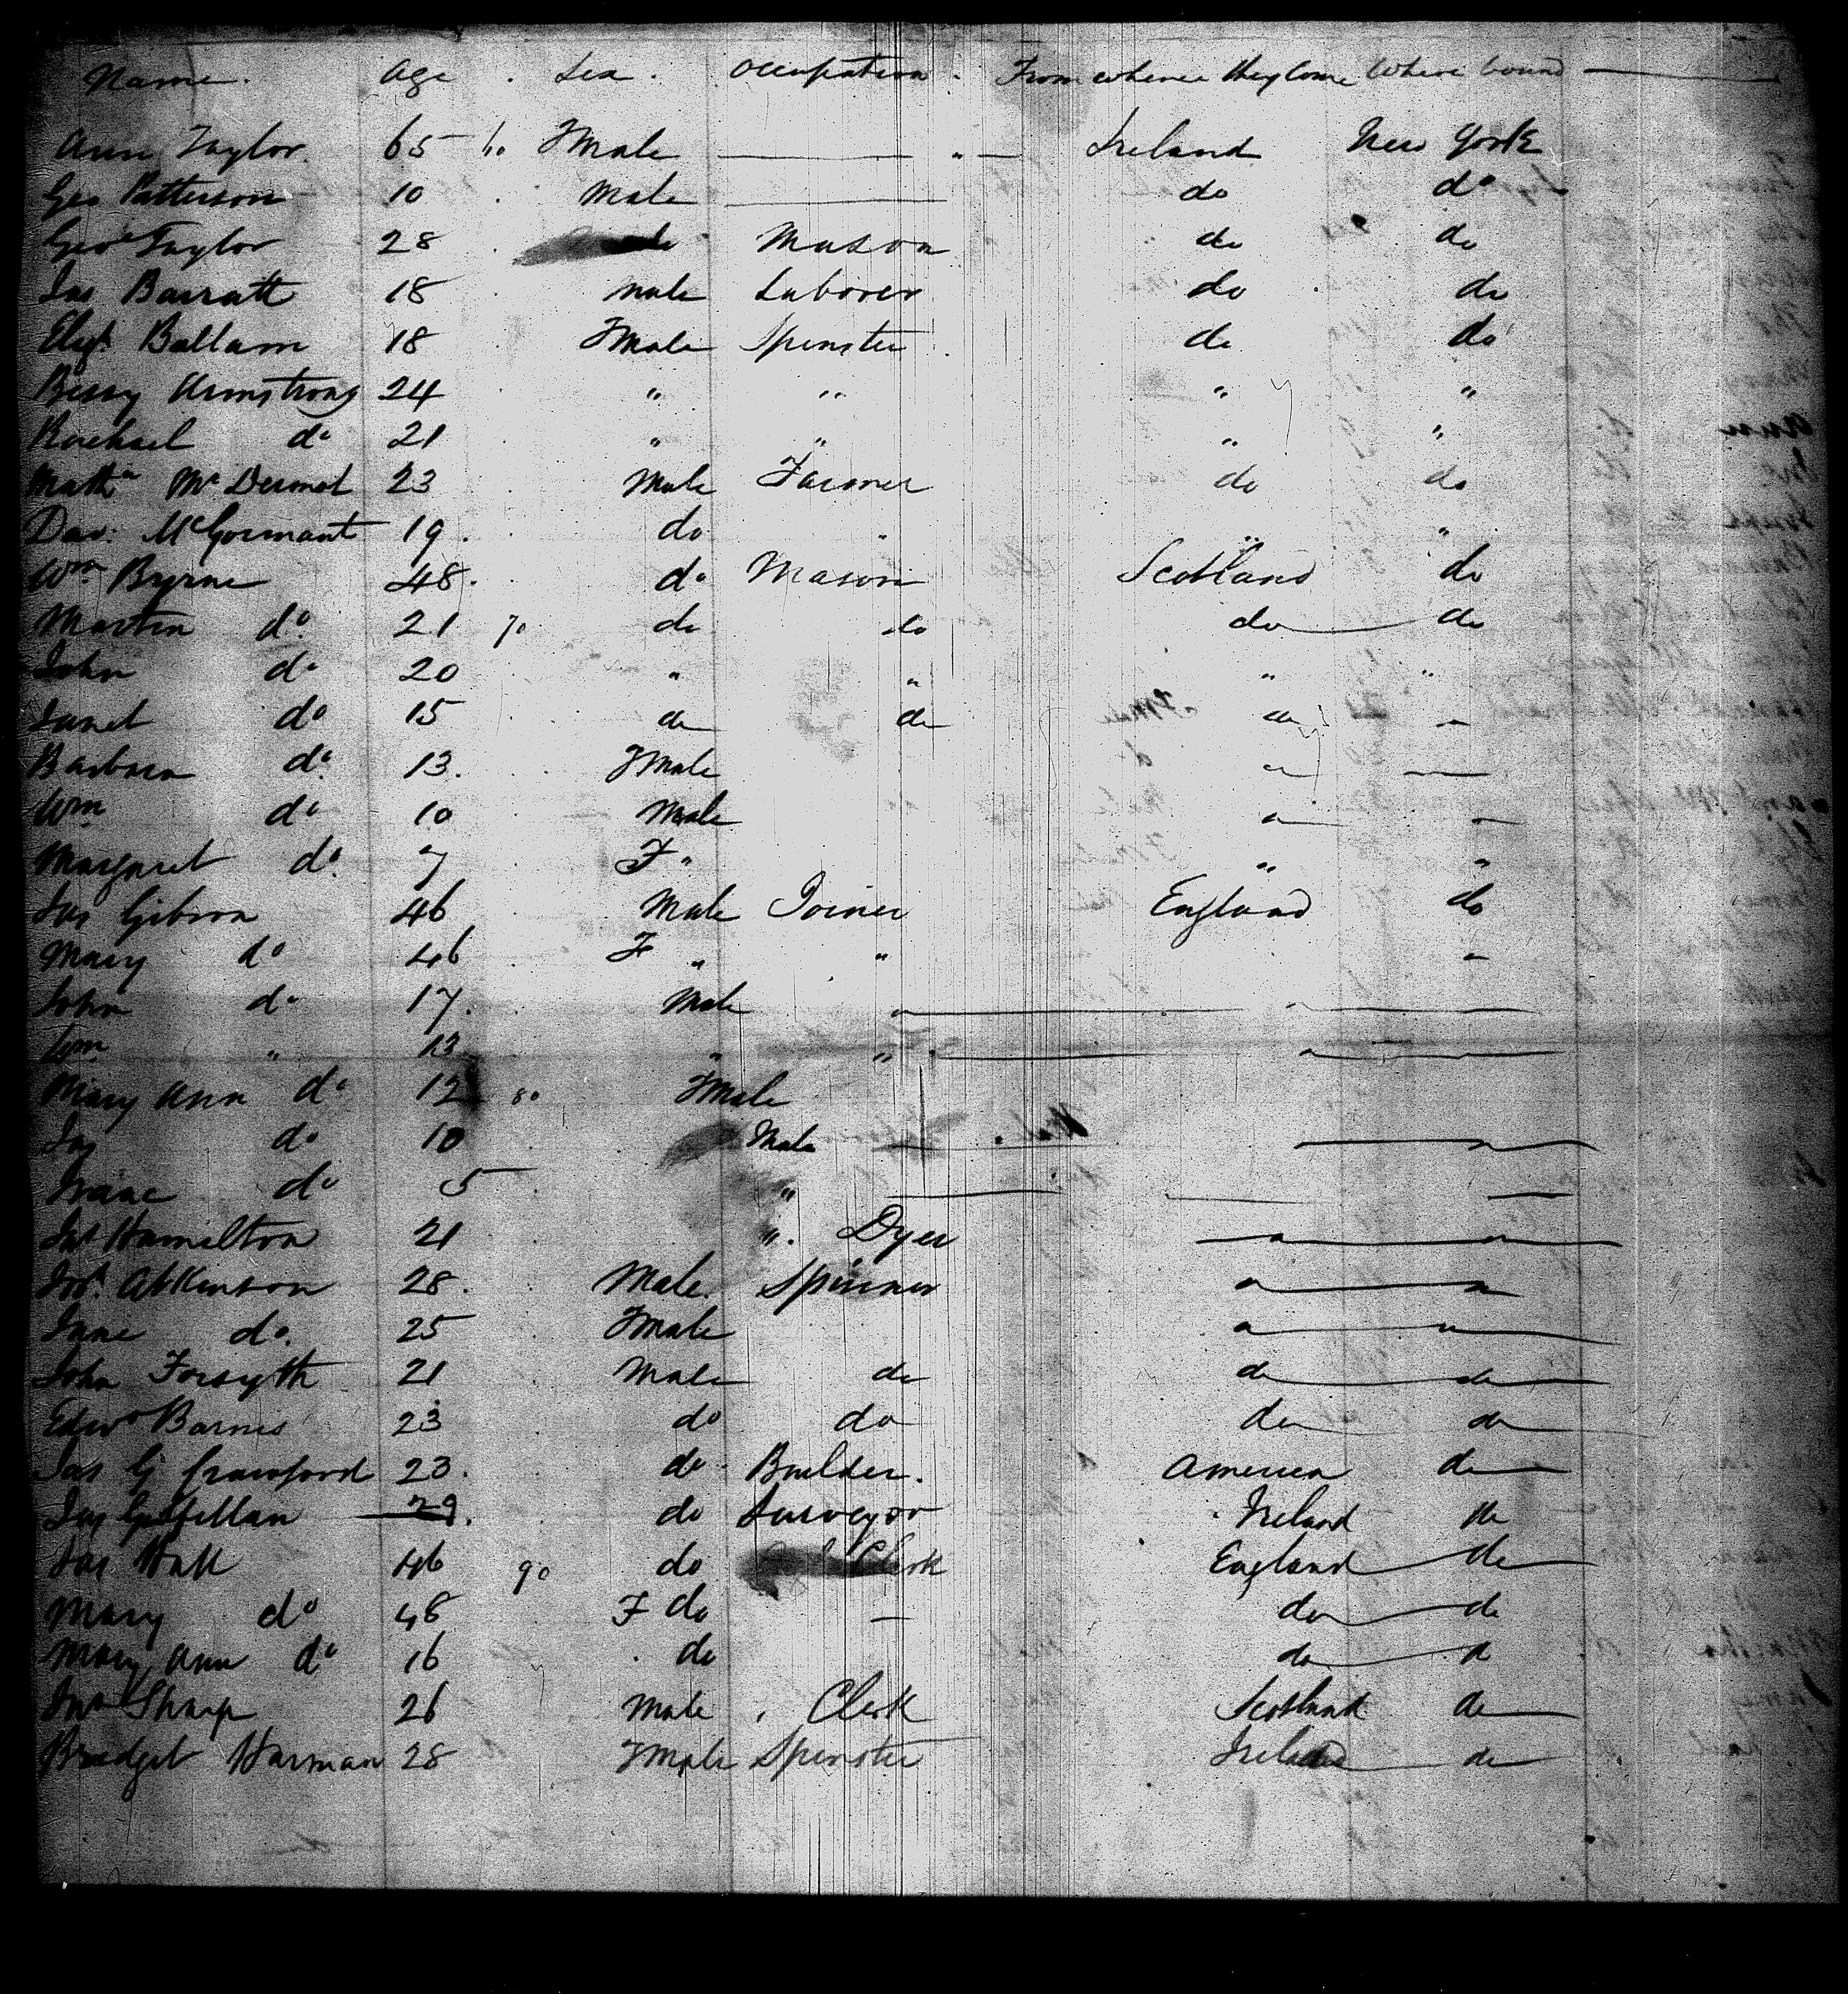 Name. Age. Sex. Occupation. From whence they come Where bound
Ann Taylor. 65 60 Fmale — " — Ireland New York
Geo Patterson 10 Male — do do
Geo Taylor 28 Mason do do
Jas Barratt 18 male Laborer do do
Elizt. Ballam 18 Fmale Spinster do do
Bessy Armstrong 24 " " " "
Rachael do 21 " " " "
Mathw McDermot 23 Male Farmer do do
Dav: McGormant 19. do " " "
Wm Byrne 48. do Mason Scotland do
Martin do. 21 70 do do do do
John do 20 " " " "
Janet do 15 do do do "
Barbara do. 13. Fmale " "
Wm do 10 Male " "
Margaret do. 7 F " " "
Jas Gibson 46 Male Joiner England do
Mary do 46 F " " "
John do 17. Male " " —
" 13 " " " —
Mary Ann do 12 80 Fmale
Jas do 10 Male — "
Isaac do 5 " — — —
Jas Hamilton 21 ". Dyer " "
Jos. Atkinson 28. Male. Spinner " "
Jane do. 25 Fmale " "
John Forsyth 21 Male do do do
Edwd Barnes 23 do do do do
Jas G Crawford 23. do Builder. America do
Jas Gilfillan 29. do Surveyor Ireland do
Jas Hall 46 90 do Clerk England do
Mary do 48 F do — do do
Mary Ann do 16 do do do
Jno Sharp 26 Male Clerk Scotland do
Bridget Harman 28 Fmale Spinster Ireland do